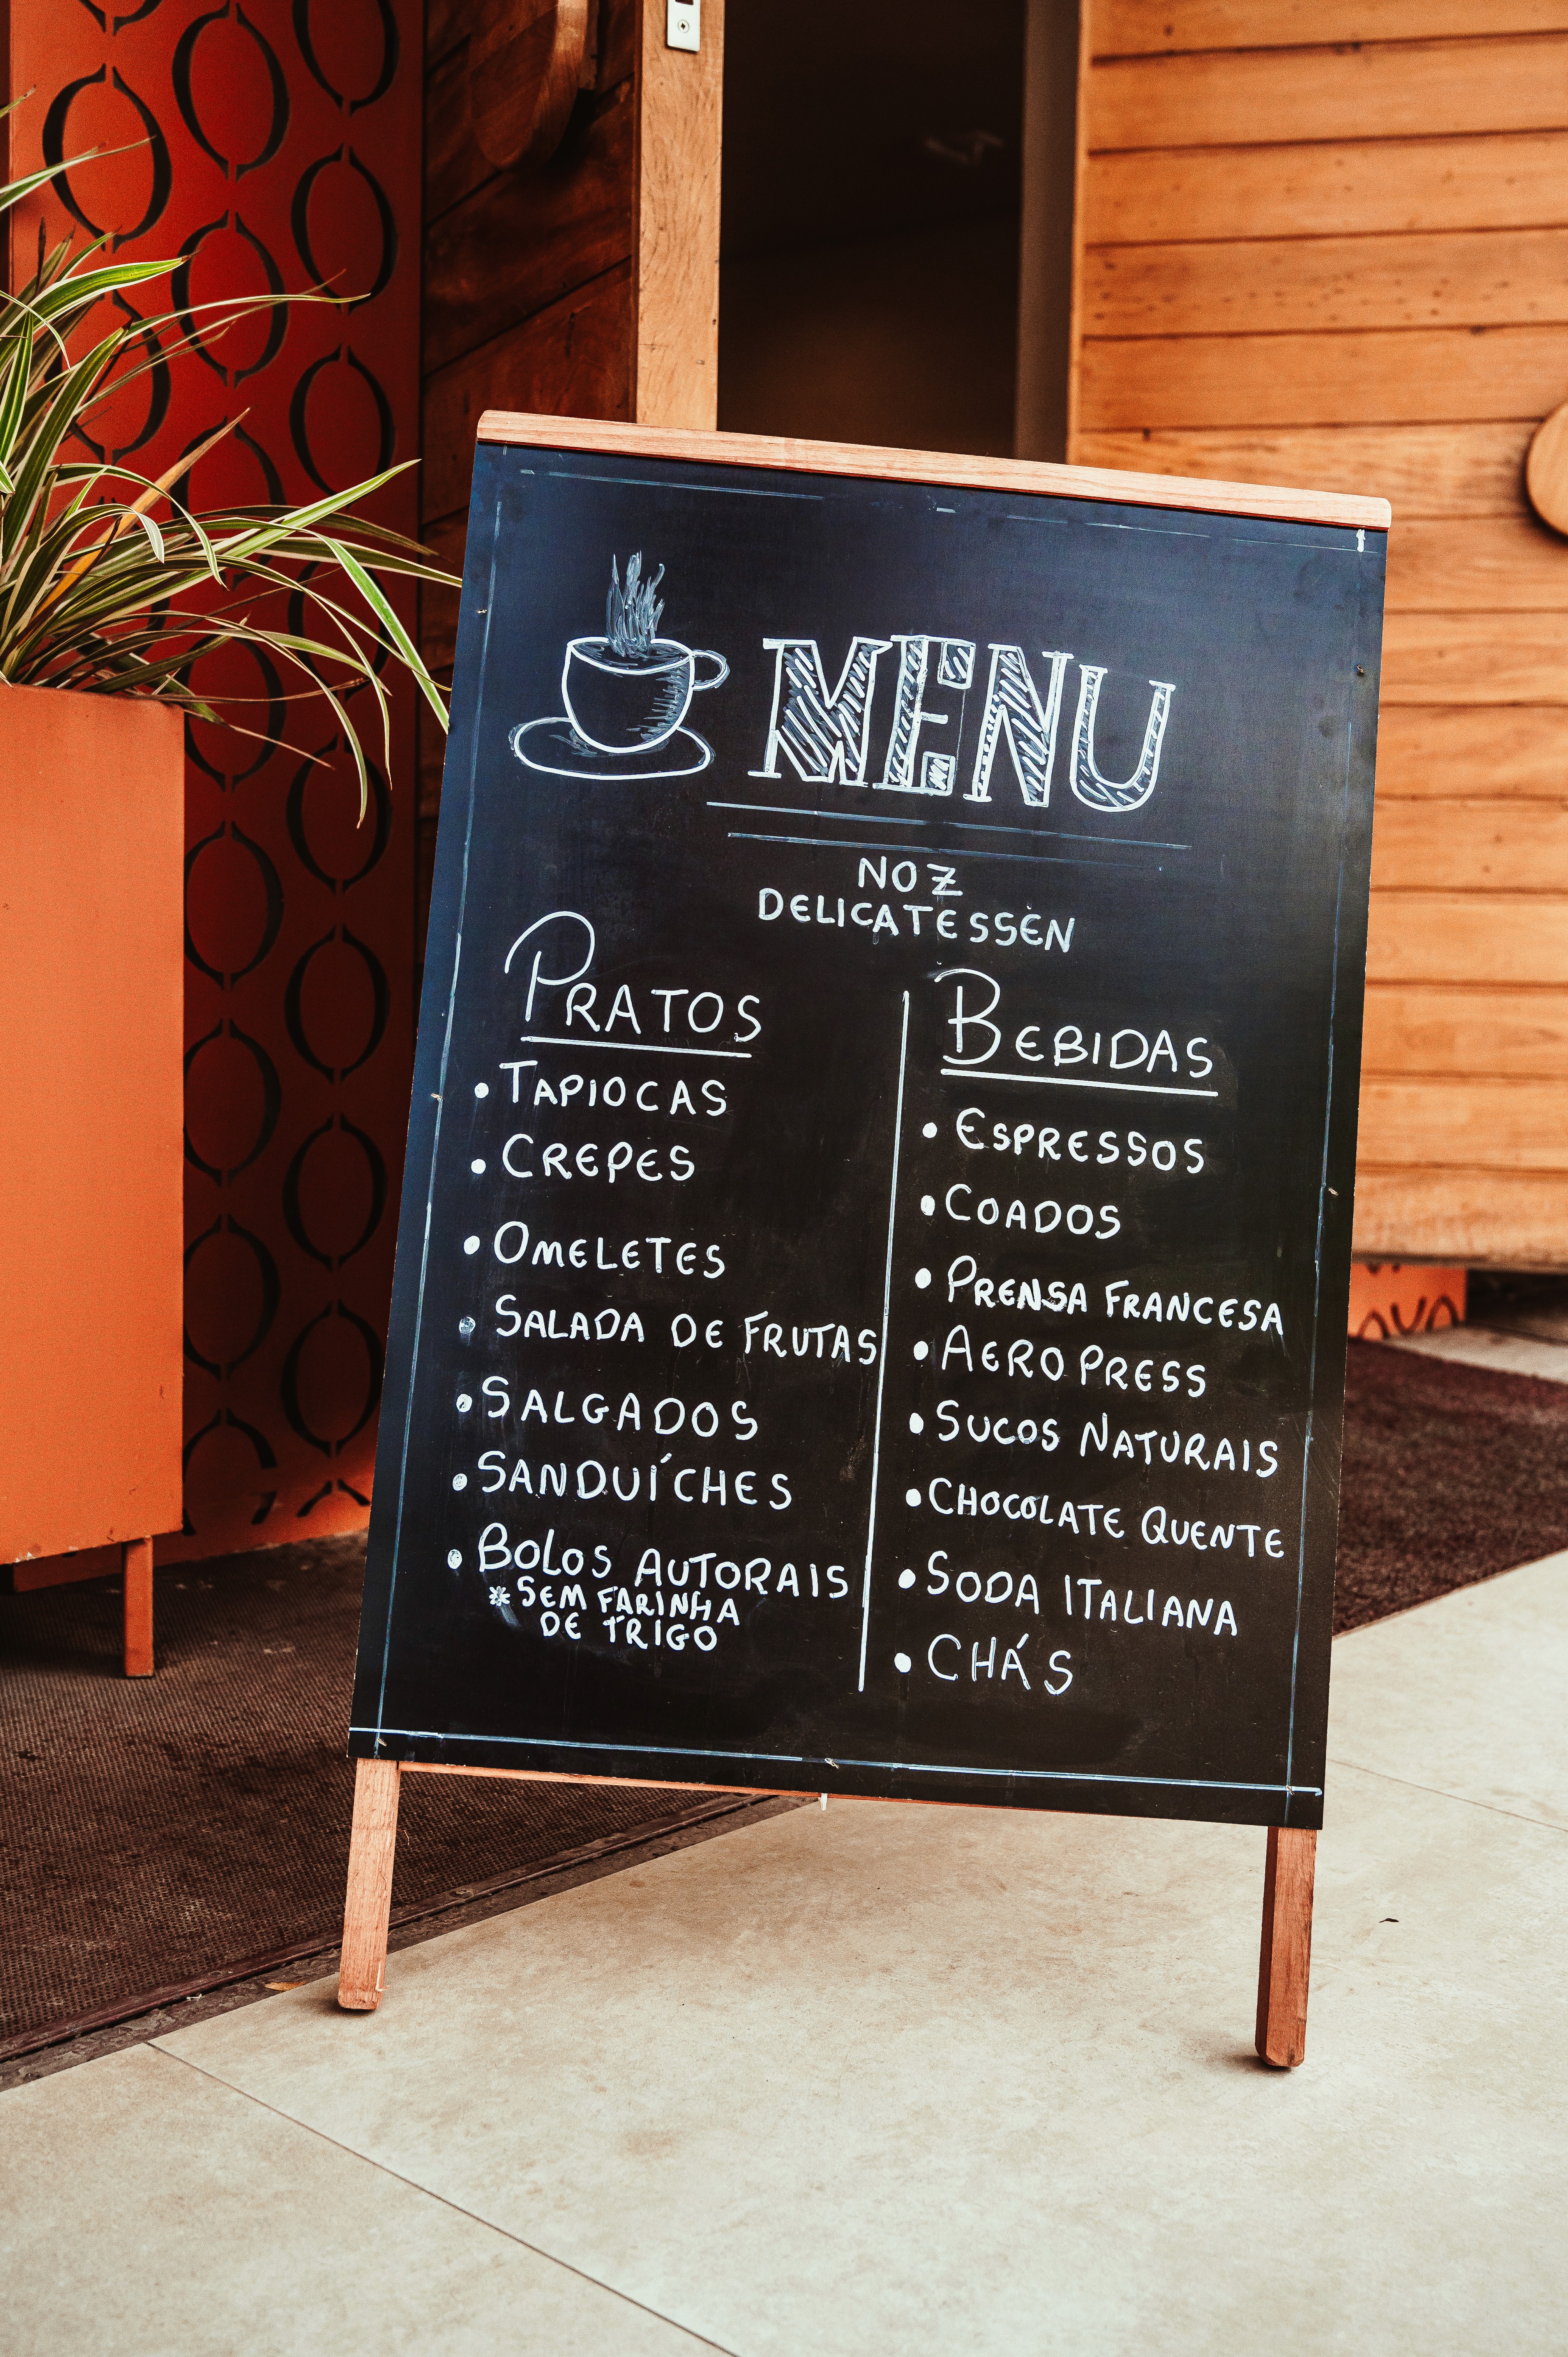 MENU
NOZ
DELICATESSEN
PRATOS
• TAPIOCAS
• CREPES
• OMELETES
• SALADA DE FRUTAS
• SALGADOS
• SANDUÍCHES
• BOLOS AUTORAIS
* SEM FARINHA
DE TRIGO
BEBIDAS
• ESPRESSOS
• COADOS
• PRENSA FRANCESA
• AEROPRESS
• SUCOS NATURAIS
• CHOCOLATE QUENTE
• SODA ITALIANA
• CHÁS